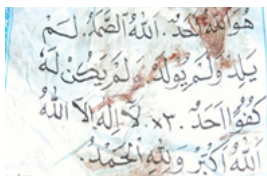 هُوَ اللهُ اَحَدٌ . اَللهُ الصَّمَدُ . لَمْ
يَلِدْ وَلَمْ يُولَدْ وَلَمْ يَكُنْ لَهُ
كُفُوًا اَحَدٌ . ×٣ لَا اِلٰهَ اِلَّا اللهُ
اَللهُ اَكْبَرْ وَلِلهِ الْحَمْدُ .